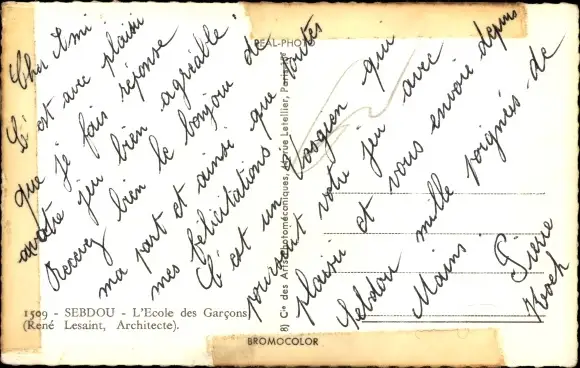 Cher Ami
C'est avec plaisir
que je fais réponse
a votre jeu bien agréable.
Recevez bien le bonjour de
ma part et ainsi que toutes
mes félicitations
C'est un Vosgien qui
poursuit votre jeu avec
plaisir et vous envoie depuis
Sebdou mille poignés de
Mains.
Pierre
REAL-PHOTO
Cie des Arts Photomécaniques, rue Letellier, Paris
1509 - SEBDOU - L'Ecole des Garçons
(René Lesaint, Architecte).
BROMOCOLOR